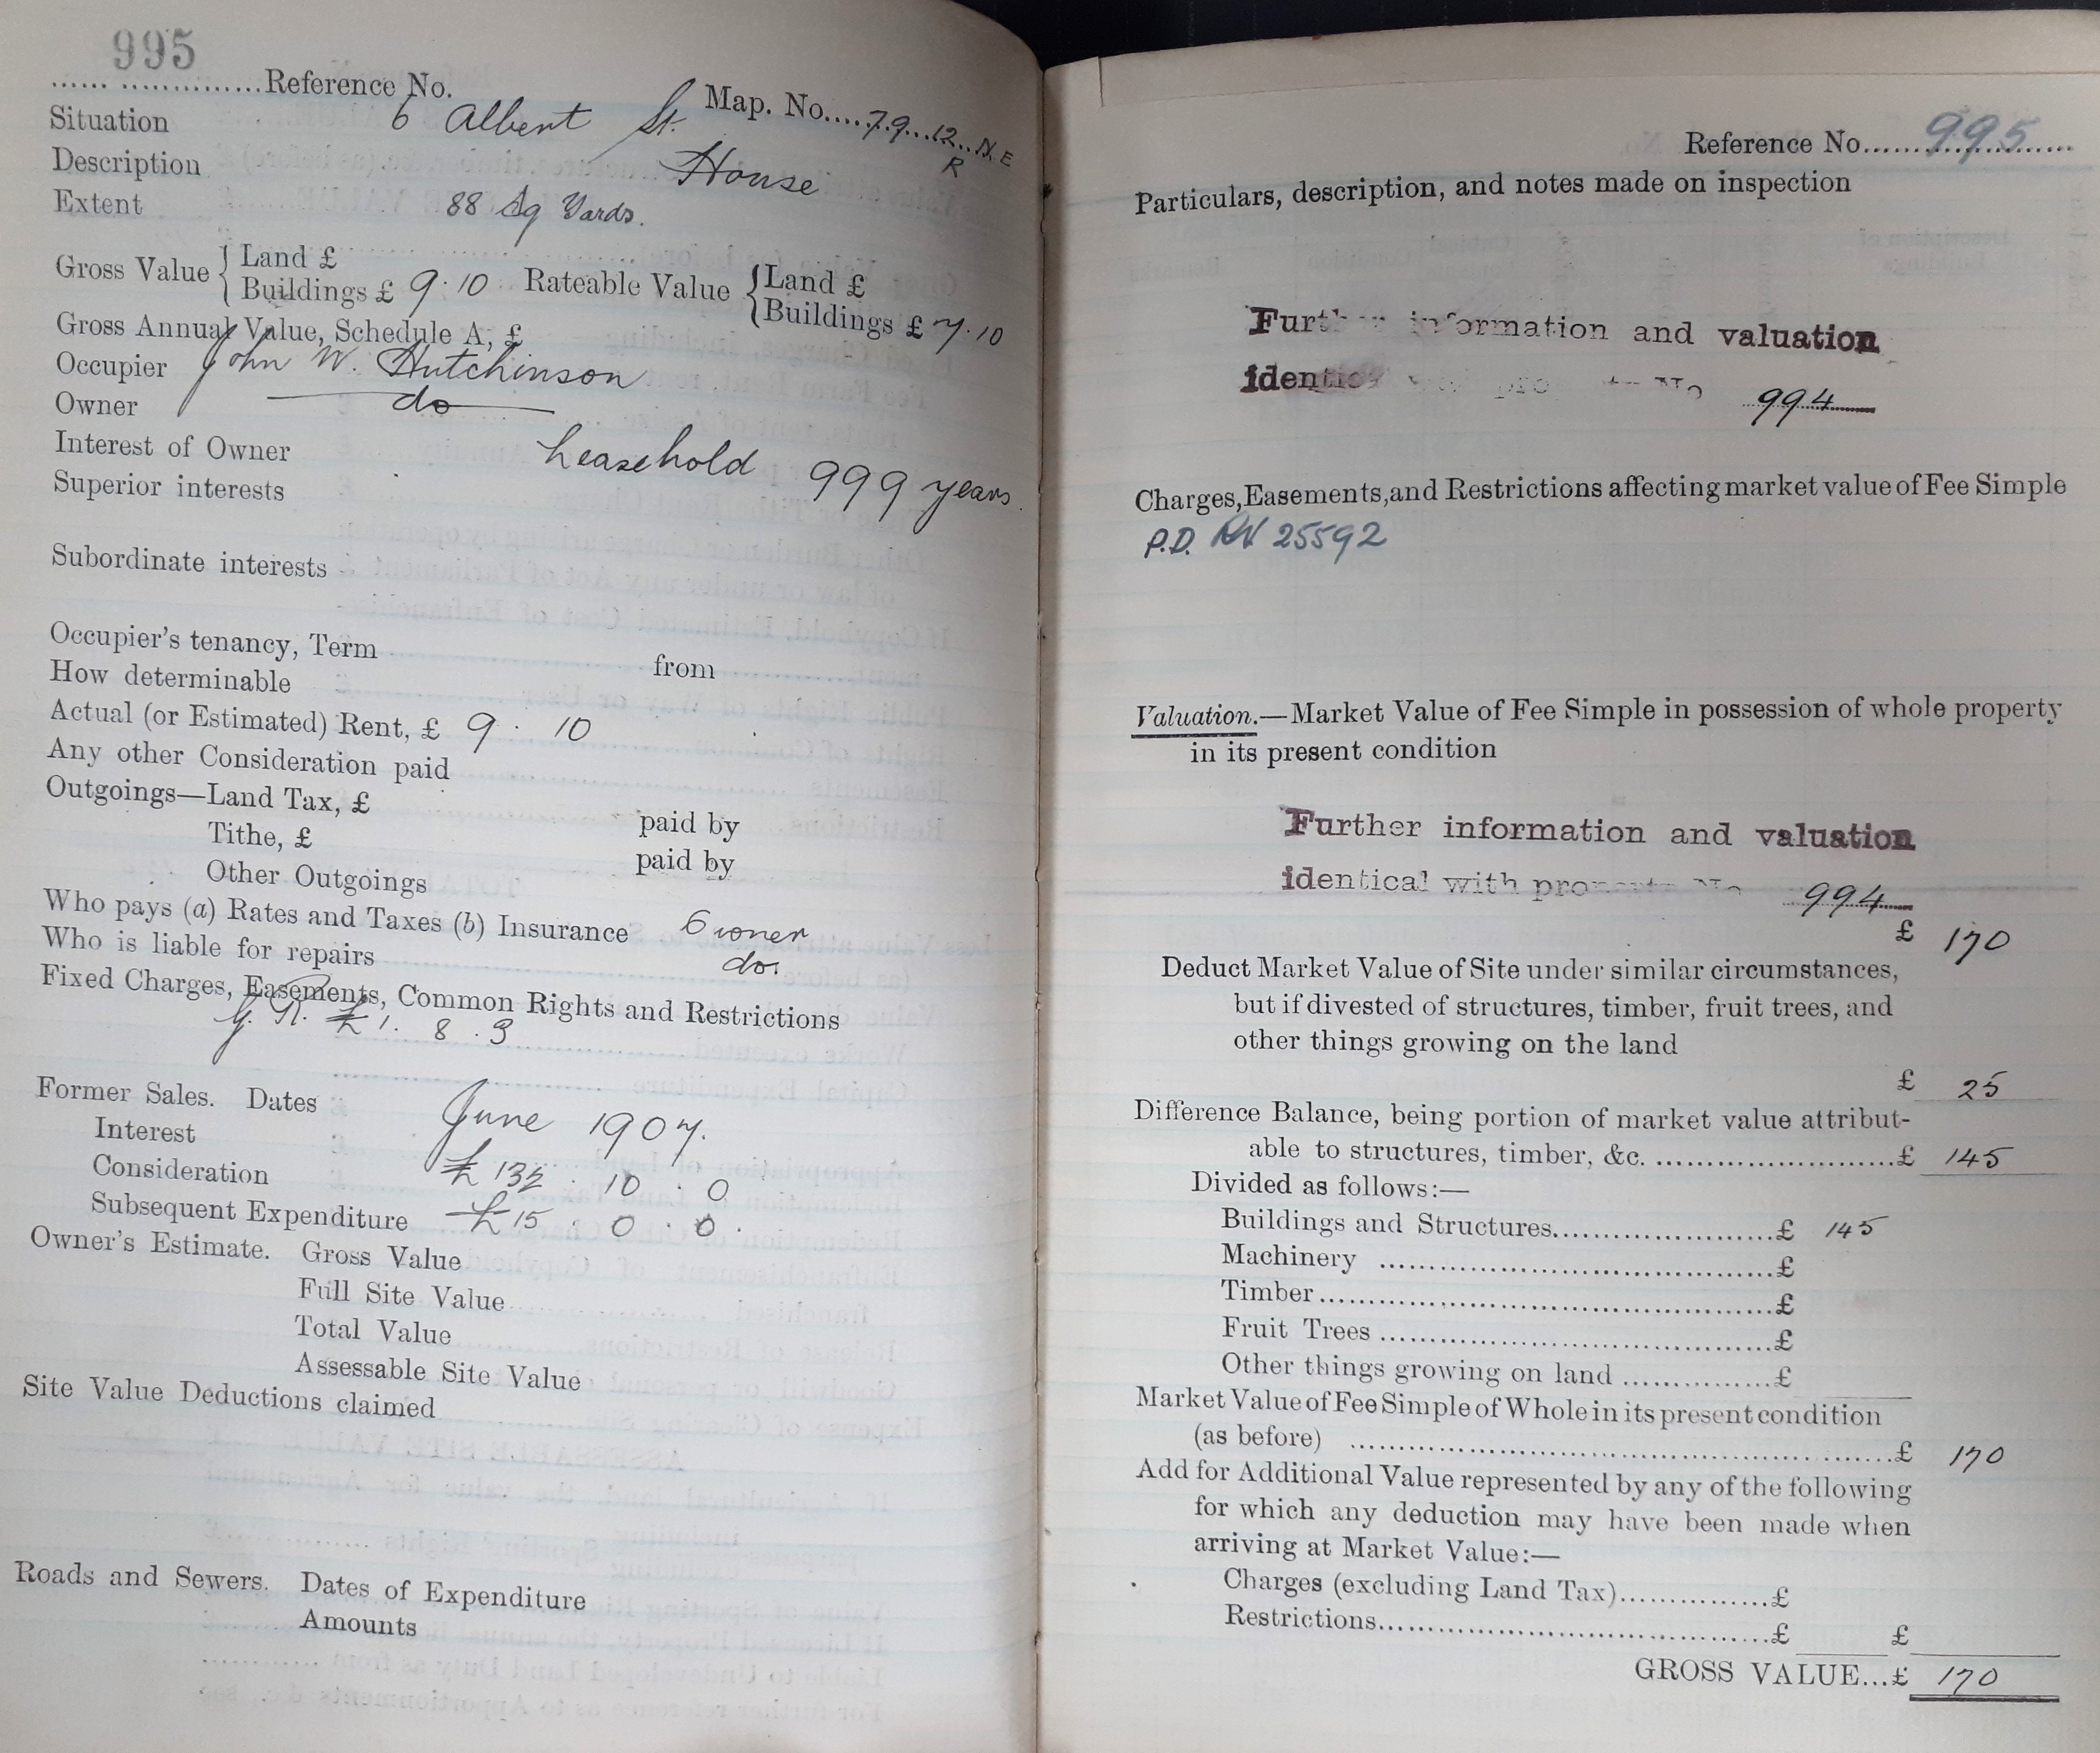 995
.....................Reference No. Map. No.....79...12...N.E
R
Situation 6 Albert St.
Description House
Extent 88 Sq Yards.
Gross Value { Land £
Buildings £ 9.10 Rateable Value { Land £
Buildings £ 7.10
Gross Annual Value, Schedule A, £
Occupier John W. Hutchinson
Owner do
Interest of Owner Leasehold 999 years.
Superior interests
Subordinate interests
Occupier's tenancy, Term from
How determinable
Actual (or Estimated) Rent, £ 9 . 10
Any other Consideration paid
Outgoings—Land Tax, £ paid by
Tithe, £ paid by
Other Outgoings
Who pays (a) Rates and Taxes (b) Insurance Owner
Who is liable for repairs do.
Fixed Charges, Easements, Common Rights and Restrictions
G. R. £1. 8. 3
Former Sales. Dates June 1907.
Interest
Consideration £132 . 10 . 0
Subsequent Expenditure £15 . 0 . 0.
Owner's Estimate. Gross Value
Full Site Value
Total Value
Assessable Site Value
Site Value Deductions claimed
Roads and Sewers. Dates of Expenditure
Amounts
Reference No......995......
Particulars, description, and notes made on inspection
Further information and valuation
identical No 994
Charges, Easements, and Restrictions affecting market value of Fee Simple
P.D. RN 25592
Valuation.—Market Value of Fee Simple in possession of whole property
in its present condition
Further information and valuation
identical with property No 994
£ 170
Deduct Market Value of Site under similar circumstances,
but if divested of structures, timber, fruit trees, and
other things growing on the land
£ 25
Difference Balance, being portion of market value attribut-
able to structures, timber, &c. ..............................£ 145
Divided as follows:—
Buildings and Structures...........................£ 145
Machinery ................................................£
Timber.......................................................£
Fruit Trees ................................................£
Other things growing on land ..................£
Market Value of Fee Simple of Whole in its present condition
(as before) ..................................................................£ 170
Add for Additional Value represented by any of the following
for which any deduction may have been made when
arriving at Market Value:—
Charges (excluding Land Tax)..................£
Restrictions................................................£ £
GROSS VALUE...£ 170